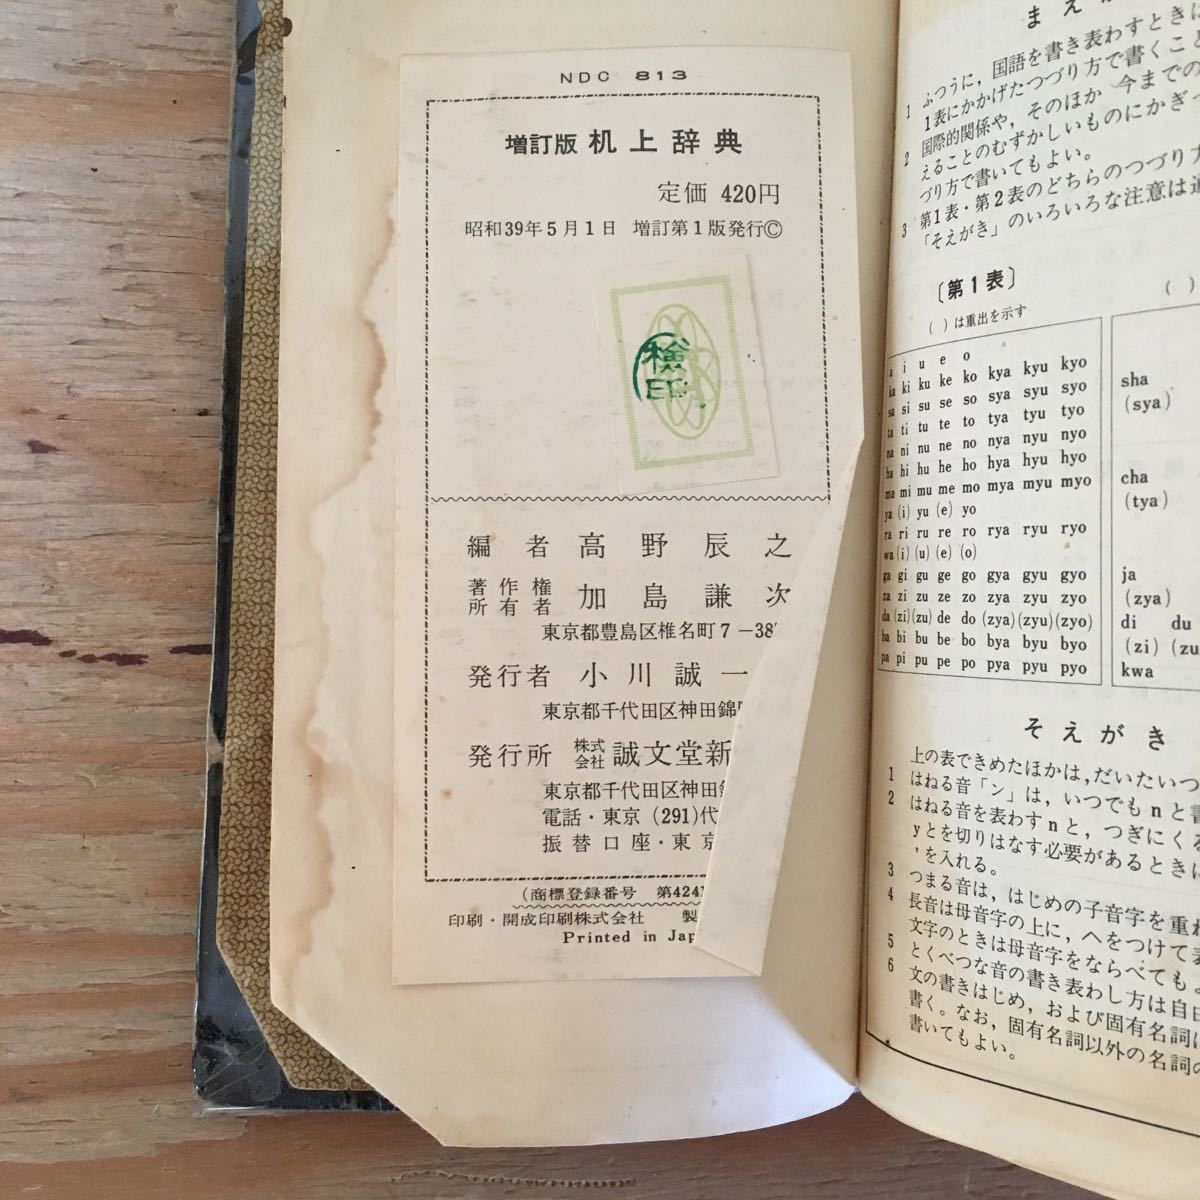 NDC 813
増訂版 机上辞典
定価 420円
昭和39年5月1日 増訂第1版発行©
検印
編者 高野辰之
著作権所有者 加島謙次
東京都豊島区椎名町7-38
発行者 小川誠一
東京都千代田区神田錦
発行所 株式会社 誠文堂新
東京都千代田区神田
電話・東京 (291)代
振替口座・東京
(商標登録番号 第424
印刷・開成印刷株式会社 製
Printed in Jap
まえ
1 ふつうに,国語を書き表わすときに
1表にかかげたつづり方で書くこと
2 国際的関係や,そのほか 今までの
えることのむずかしいものにかぎ
づり方で書いてもよい。
3 第1表・第2表のどちらのつづり方
「そえがき」のいろいろな注意は適
〔第1表〕
( )は重出を示す
a i u e o
ka ki ku ke ko kya kyu kyo
sa si su se so sya syu syo
ta ti tu te to tya tyu tyo
na ni nu ne no nya nyu nyo
ha hi hu he ho hya hyu hyo
ma mi mu me mo mya myu myo
ya (i) yu (e) yo
ra ri ru re ro rya ryu ryo
wa (i) (u) (e) (o)
ga gi gu ge go gya gyu gyo
za zi zu ze zo zya zyu zyo
da (zi) (zu) de do (zya) (zyu) (zyo)
ba bi bu be bo bya byu byo
pa pi pu pe po pya pyu pyo
( )
sha
(sya)
cha
(tya)
ja
(zya)
di du
(zi) (zu
kwa
そえがき
上の表できめたほかは,だいたいつ
1 はねる音「ン」は,いつでもnと書
2 はねる音を表わすnと,つぎにくる
yとを切りはなす必要があるときに
'を入れる。
3 つまる音は,はじめの子音字を重ね
4 長音は母音字の上に,へをつけて表
文字のときは母音字をならべてもよ
5 とくべつな音の書き表わし方は自由
6 文の書きはじめ,および固有名詞に
書く。なお,固有名詞以外の名詞の
書いてもよい。